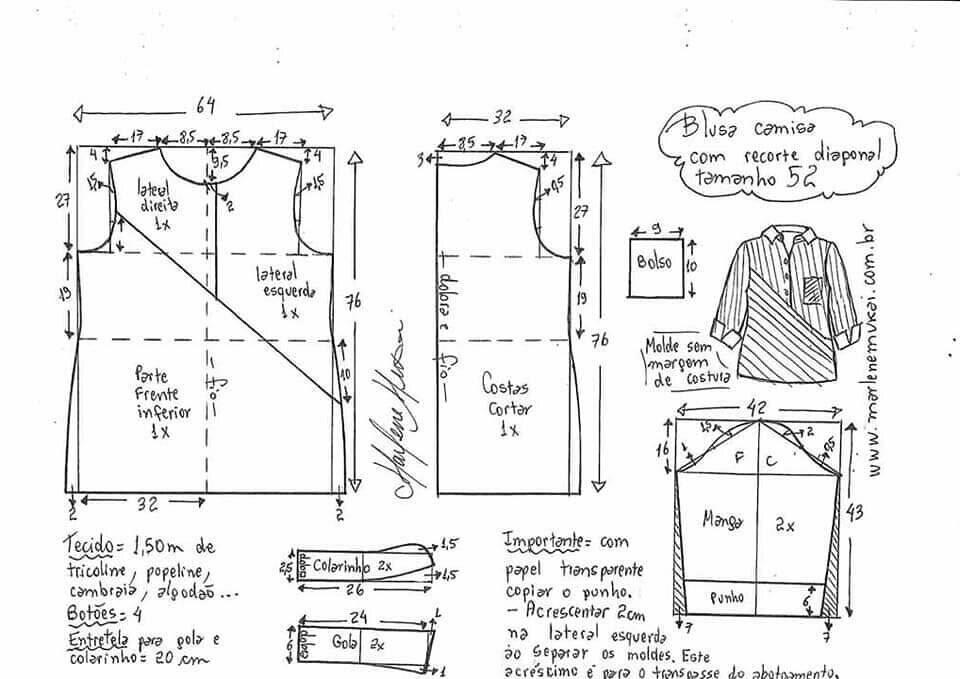 Blusa camisa
com recorte diagonal
tamanho 52
64
17
8,5
8,5
17
4
9,5
4
1,5
1,5
2
27
lateral
direita
1x
lateral
esquerda
1x
19
76
10
Parte
Frente
inferior
1x
fio
32
2
2
Marlene Mukai
32
8,5
17
3
4
27
19
76
dobra e
fio
Costas
Cortar
1x
9
Bolso
10
Molde sem
margem
de costura
www.marlenemukai.com.br
42
16
1,5
2
1
0,5
F
C
43
Manga
2x
Punho
6
7
7
Tecido= 1,50m de
tricoline, popeline,
cambraia, algodão...
Botões= 4
Entretela para gola e
colarinho= 20 cm
2,5
dobra
Colarinho
2x
1,5
1,5
26
24
1
6
dobra
Gola
2x
1
Importante= com
papel transparente
copiar o punho.
- Acrescentar 2cm
na lateral esquerda
ao separar os moldes. Este
acréscimo é para o transpasse do abotoamento.